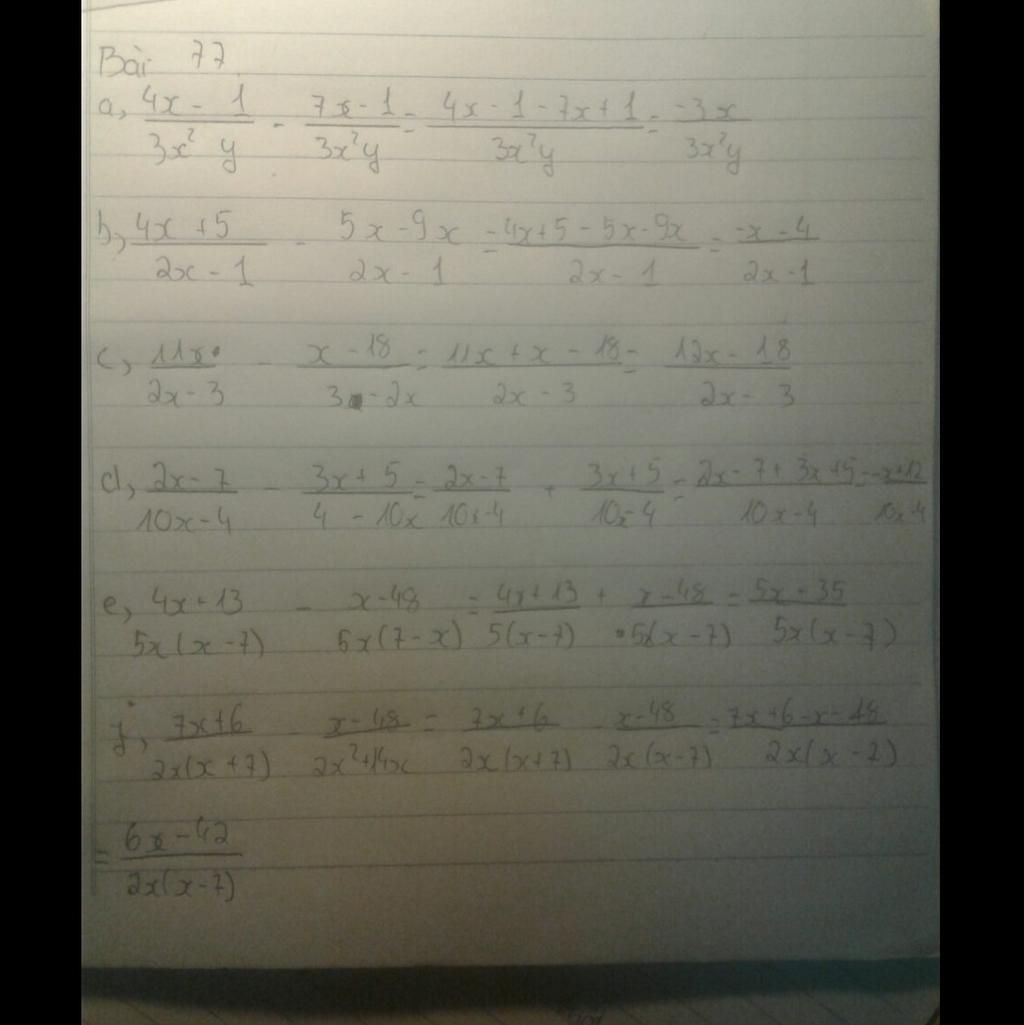 Bài 77
a, (4x - 1)/(3x² y) - (7x - 1)/(3x²y) = (4x - 1 - 7x + 1)/(3x²y) = (-3x)/(3x²y)
b, (4x + 5)/(2x - 1) - (5x - 9x)/(2x - 1) = (4x + 5 - 5x - 9x)/(2x - 1) = (-x - 4)/(2x - 1)
c, (11x)/(2x - 3) - (x - 18)/(3 - 2x) = (11x + x - 18)/(2x - 3) = (12x - 18)/(2x - 3)
d, (2x - 7)/(10x - 4) - (3x + 5)/(4 - 10x) = (2x - 7)/(10x - 4) + (3x + 5)/(10x - 4) = (2x - 7 + 3x + 5)/(10x - 4) = (-x + 12)/(10x - 4)
e, (4x + 13)/(5x(x - 7)) - (x - 48)/(5x(7 - x)) = (4x + 13)/(5(x - 7)) + (x - 48)/(5x(x - 7)) = (5x - 35)/(5x(x - 7))
f, (7x + 6)/(2x(x + 7)) - (x - 48)/(2x² + 14x) = (7x + 6)/(2x(x + 7)) - (x - 48)/(2x(x - 7)) = (7x + 6 - x - 48)/(2x(x - 7))
= (6x - 42)/(2x(x - 7))